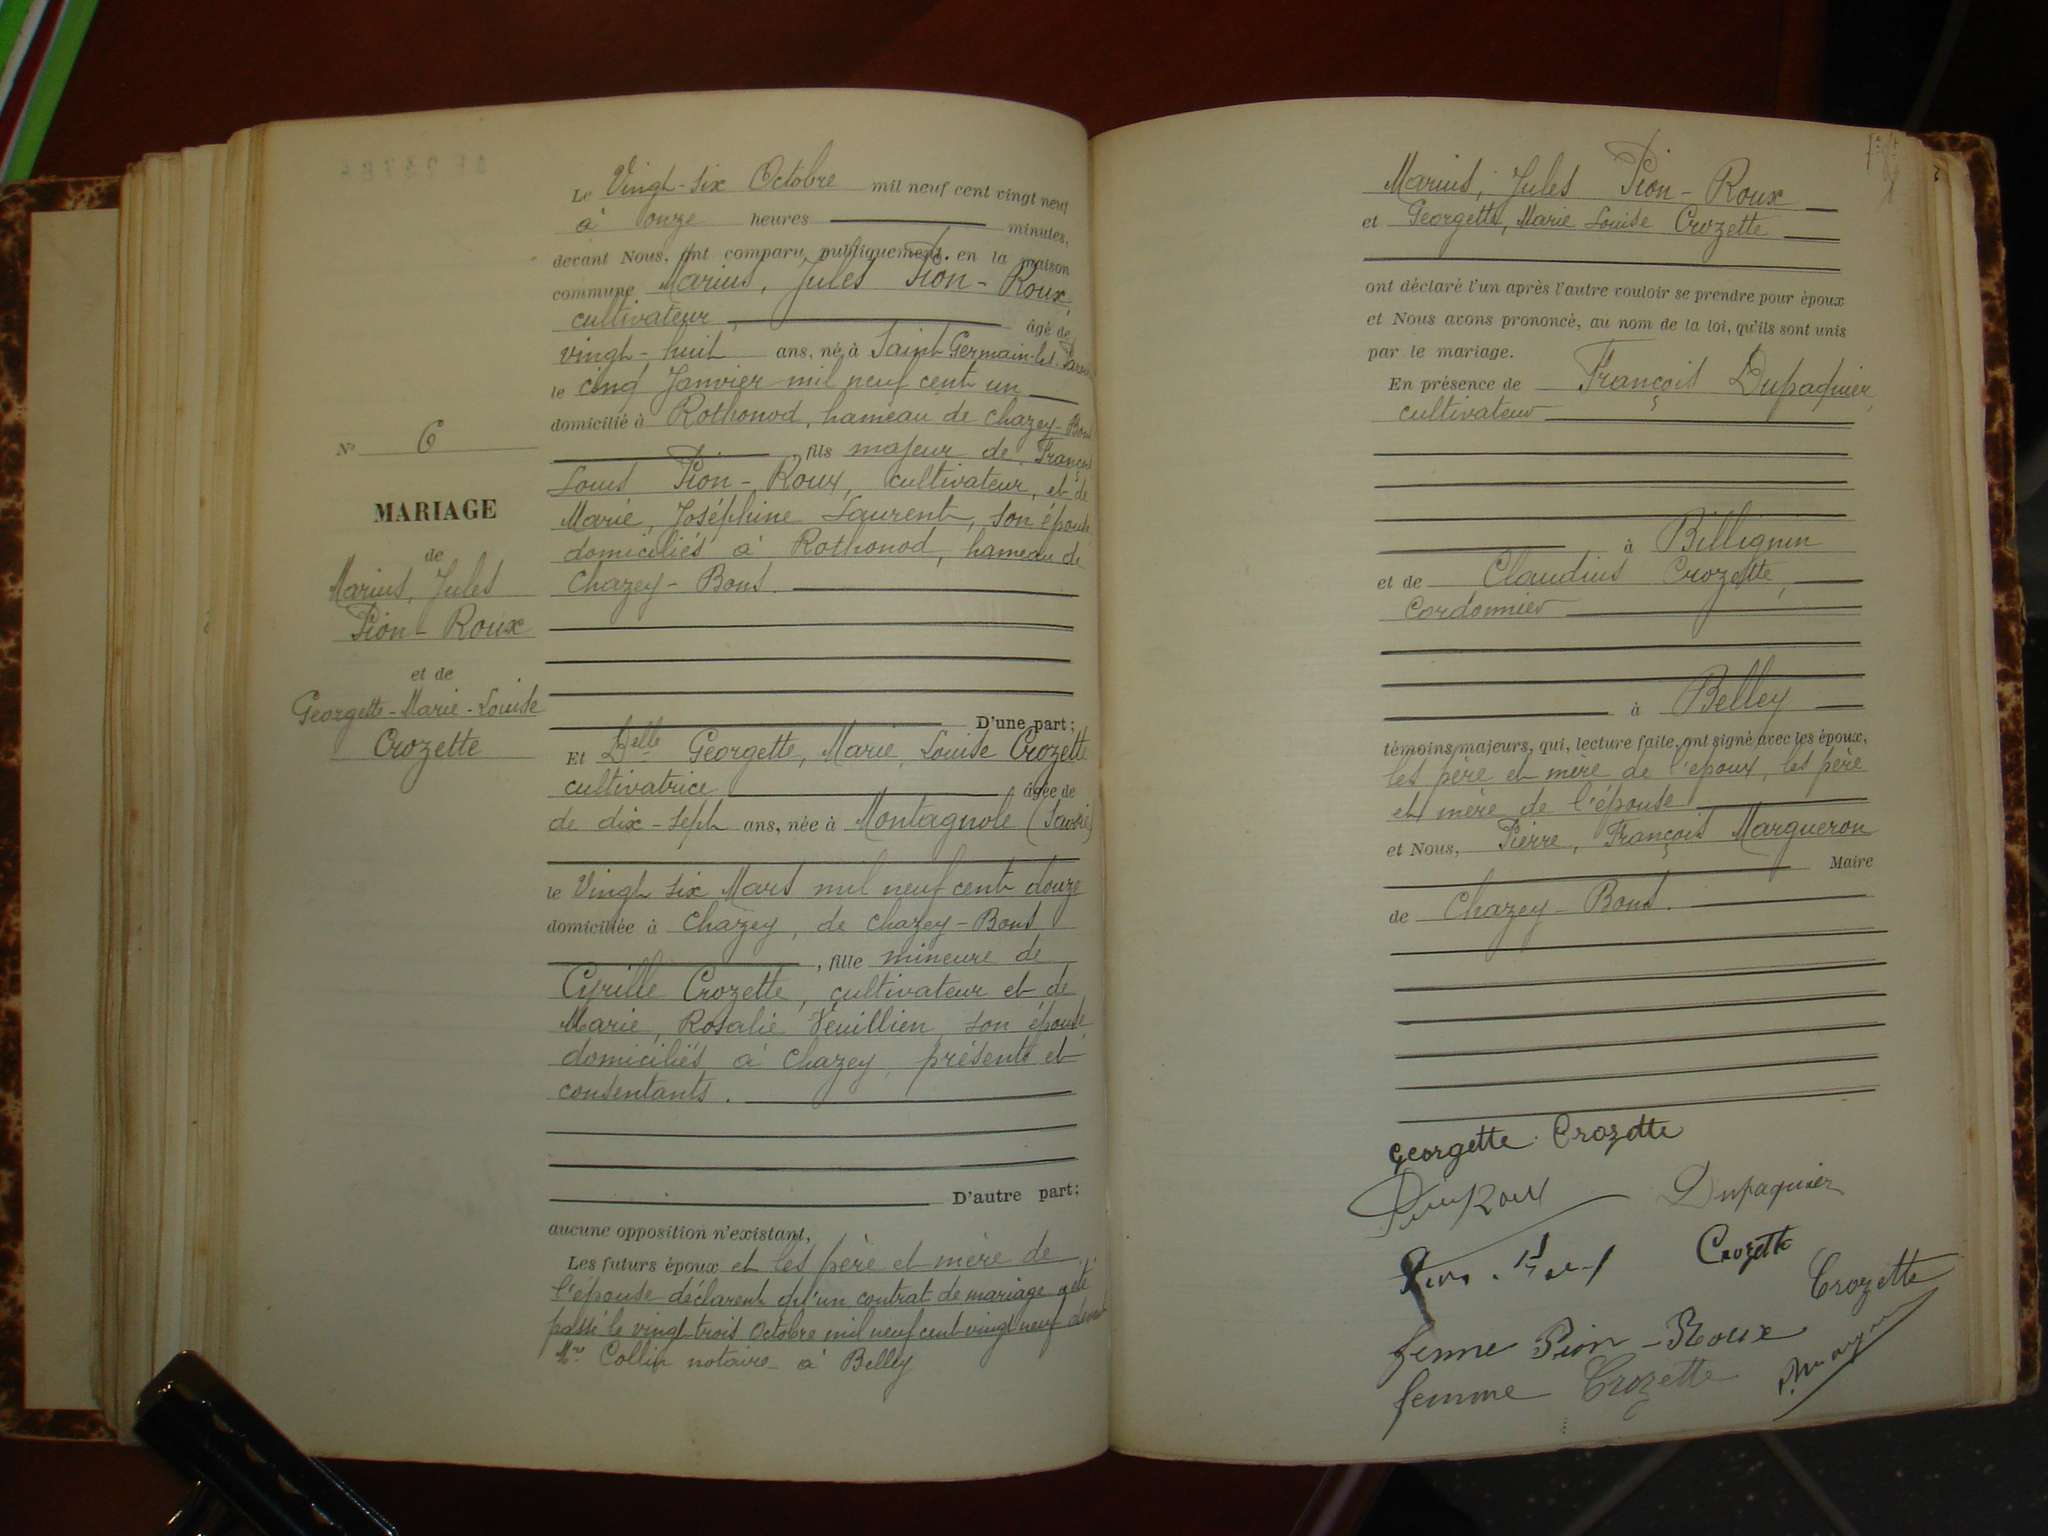 N° 6
MARIAGE
de
Marius, Jules
Pion-Roux
et de
Georgette-Marie-Louise
Crozette
Le Vingt-six Octobre mil neuf cent vingt neuf
à onze heures minutes,
devant Nous, ont comparu publiquement en la maison
commune Marius, Jules Pion-Roux,
cultivateur, âgé de
vingt-huit ans, né à Saint Germain-les-
le cinq Janvier mil neuf cent un
domicilié à Rothonod, hameau de Chazey-Bons
, fils majeur de François
Louis Pion-Roux, cultivateur, et de
Marie, Joséphine Laurent, son épouse
domiciliés à Rothonod, hameau de
Chazey-Bons.
D'une part;
Et Delle Georgette, Marie, Louise Crozette
cultivatrice âgée de
de dix-sept ans, née à Montagnole (Savoie)
le Vingt six Mars mil neuf cent douze
domiciliée à Chazey, de Chazey-Bons
, fille mineure de
Cyrille Crozette, cultivateur et de
Marie, Rosalie Veuillien, son épouse,
domiciliés à Chazey, présents et
consentants.
D'autre part;
aucune opposition n'existant,
Les futurs époux et les père et mère de
l'épouse déclarent qu'un contrat de mariage a été
passé le vingt trois Octobre mil neuf cent vingt neuf devant
Me Collin notaire à Belley
Marius, Jules Pion-Roux
et Georgette, Marie Louise Crozette
ont déclaré l'un après l'autre vouloir se prendre pour époux
et Nous avons prononcé, au nom de la loi, qu'ils sont unis
par le mariage.
En présence de François Dupaquier,
cultivateur
à Billignin
et de Claudius Crozette,
Cordonnier
à Belley
témoins majeurs, qui, lecture faite, ont signé avec les époux,
les père et mère de l'époux, les père
et mère de l'épouse
et Nous, Pierre, François Margueron
Maire
de Chazey-Bons.
Georgette Crozette
Pion Roux Dupaquier
Crozette
Crozette
femme Pion-Roux
femme Crozette